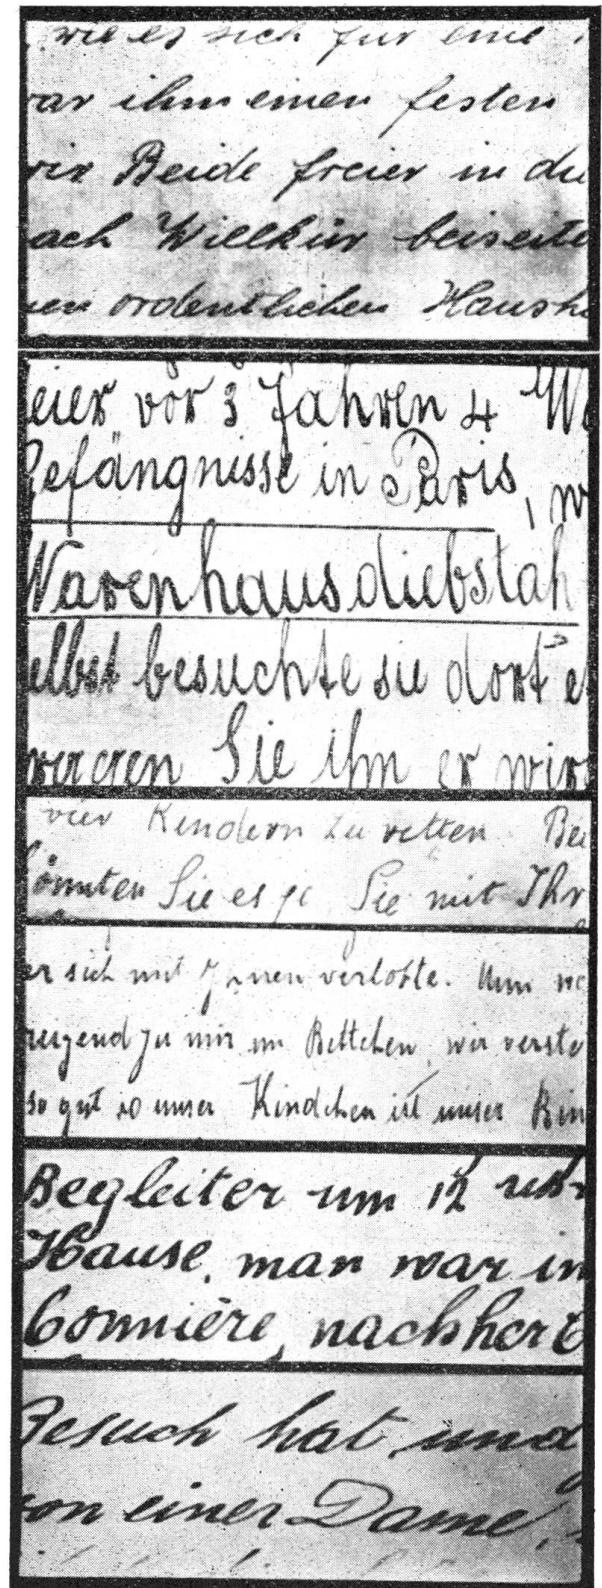 wie es sich für eine
ar ihm einen festen
wir Beide freier in du
ach Willkür beiseite
nen ordentlichen Haush
eier vor 3 Jahren 4 Wo
Gefängnisse in Paris, w
Warenhausdiebstah
elbst besuchte sie dort e
Sie ihm er wird
vier Kindern zu retten Bei
könnten Sie es ja Sie mit Ihr
er sich mit Ihnen verlobte. Nun
reizend zu mir im Bettchen, wir verste
so gut so unser Kindchen ist unser Bin
Begleiter um 12 uhr
Hause, man war in
Connière, nachher
Besuch hat und
von einer Dame,